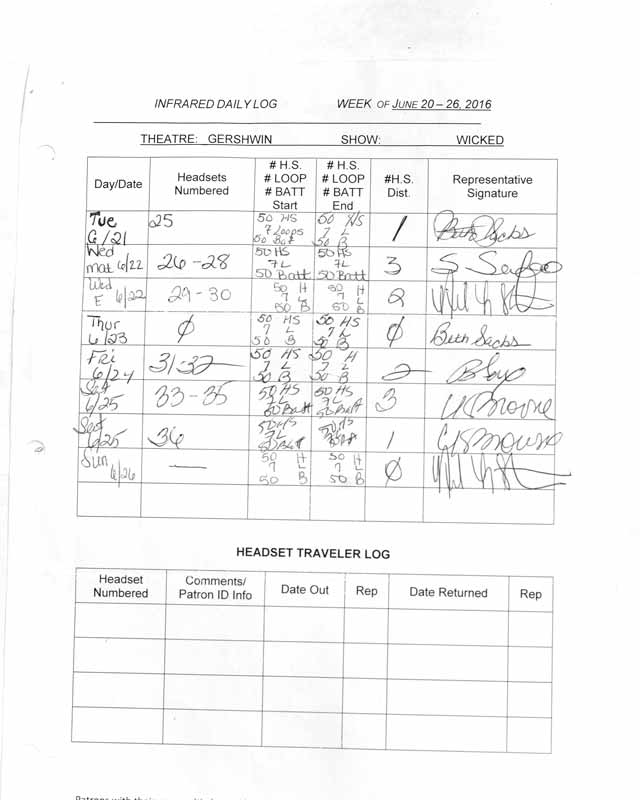 INFRARED DAILY LOG WEEK OF JUNE 20 – 26, 2016
THEATRE: GERSHWIN SHOW: WICKED
Day/Date
Headsets
Numbered
# H.S.
# LOOP
# BATT
Start
# H.S.
# LOOP
# BATT
End
#H.S.
Dist.
Representative
Signature
Tue
6/21
25
50 HS
7 Loops
50 Bat
50 HS
7 L
50 B
1
Beth Sachs
Wed
mat 6/22
26-28
50 HS
7L
50 Batt
50 HS
7L
50 Batt
3
Wed
E 6/22
29-30
50 H
7 L
50 B
50 H
7 L
50 B
2
Thur
6/23
Ø
50 HS
7 L
50 B
50 HS
7 L
50 B
Ø
Beth Sachs
Fri
6/24
31-32
50 HS
7 L
50 B
50 H
7 L
50 B
2
Sat
6/25
33-35
50 HS
7L
50 Batt
50 HS
7L
50 Batt
3
Sat
6/25
36
50 HS
7L
50 Batt
50 HS
1
Sun
6/26
—
50 H
7 L
50 B
50 H
7 L
50 B
Ø
HEADSET TRAVELER LOG
Headset
Numbered
Comments/
Patron ID Info
Date Out
Rep
Date Returned
Rep